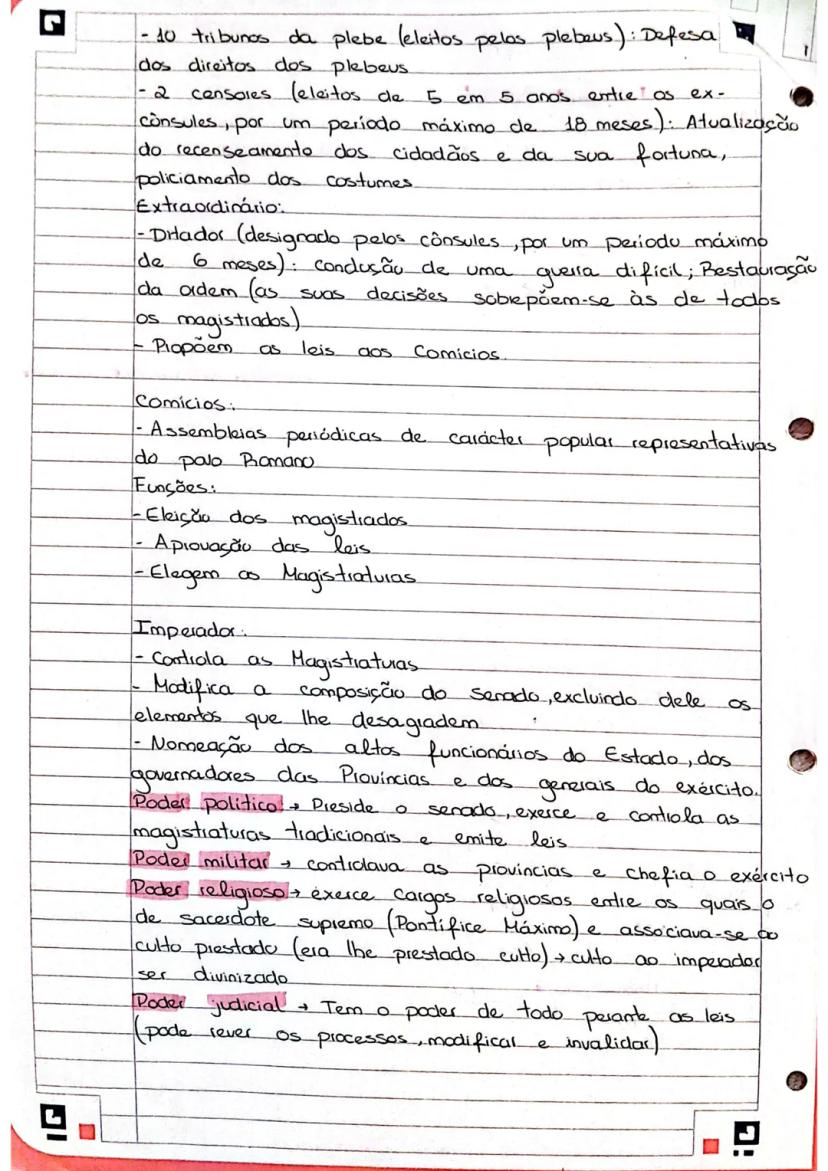 - 10 tribunos da plebe (eleitos pelos plebeus): Defesa
dos direitos dos plebeus
- 2 censores (eleitos de 5 em 5 anos entre os ex-
cônsules, por um período máximo de 18 meses): Atualização
do recenseamento dos cidadãos e da sua fortuna,
policiamento dos costumes
Extraordinário:
- Ditador (designado pelos cônsules, por um período máximo
de 6 meses): condução de uma guerra difícil; Restauração
da ordem (as suas decisões sobrepõem-se às de todos
os magistrados)
- Propõem as leis aos Comícios.
Comícios:
- Assembleias periódicas de carácter popular representativas
do povo Romano
Funções:
- Eleição dos magistrados
- Aprovação das leis
- Elegem as Magistraturas
Imperador:
- Controla as Magistraturas
- Modifica a composição do senado, excluindo dele os
elementos que lhe desagradem
- Nomeação dos altos funcionários do Estado, dos
governadores das Províncias e dos generais do exército.
Poder político → Preside o senado, exerce e controla as
magistraturas tradicionais e emite leis
Poder militar → controlava as províncias e chefia o exército
Poder religioso → exerce cargos religiosos entre os quais o
de sacerdote supremo (Pontífice Máximo) e associava-se ao
culto prestado (era lhe prestado culto) → culto ao imperador
ser divinizado
Poder judicial → Tem o poder de todo perante as leis
(pode rever os processos, modificar e invalidar)